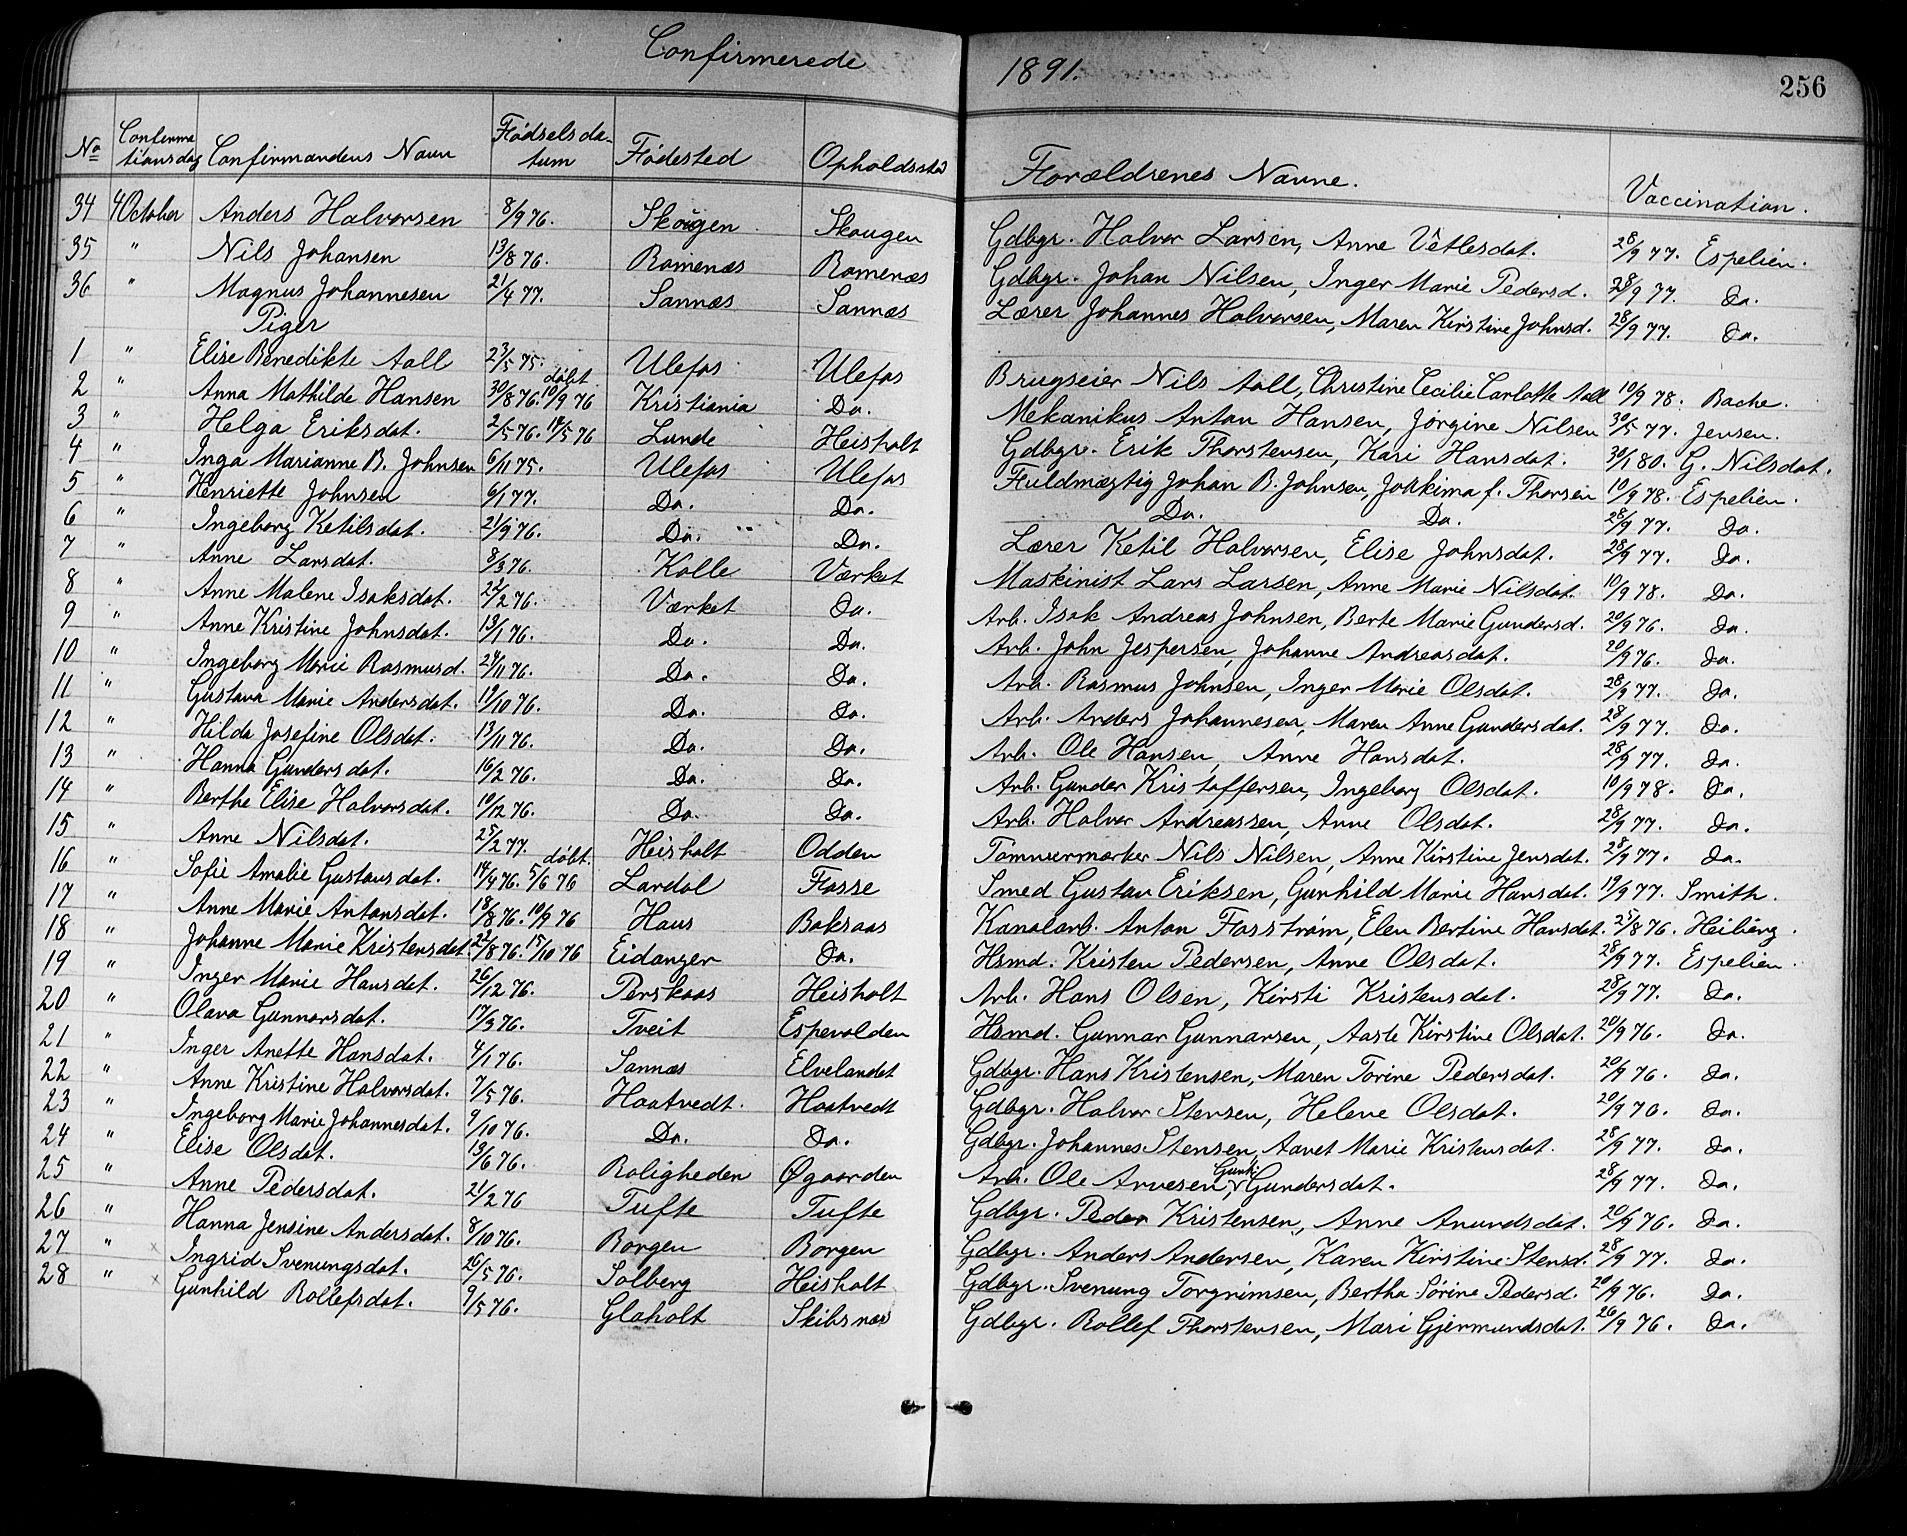 Confirmerede 1891. 256
No Confirmationsdag Confirmandens Navn Fødselsdatum Fødested Opholdssted Forældrenes Navne. Vaccination.
34 4 October Anders Halvorsen 8/9 76. Skougen Skougen Gdbgr. Halvor Larsen, Anne Vetlesdat. 28/9 77. Espelien.
35 " Nils Johansen 13/8 76. Romenæs Romenæs Gdbgr. Johan Nilsen, Inger Marie Pedersd. 28/9 77. Do.
36 " Magnus Johannesen 21/4 77. Sannæs Sannæs Lærer Johannes Halvorsen, Maren Kirstine Johnsd. 28/9 77. Do.
Piger
1 " Elise Benedikte Aall 23/5 75. Ulefos Ulefos Brugseier Nils Aall, Christine Cecilie Carlotte Aall 10/9 78. Bache.
2 " Anna Mathilde Hansen 30/8 76. døbt 10/9 76 Kristiania Do. Mekanikus Anton Hansen, Jørgine Nilsen 30/5 77. Jensen.
3 " Helga Eriksdat. 2/5 76. 14/5 76 Lunde Heisholt Gdbgr. Erik Thorstensen, Kari Hansdat. 30/1 80. G. Nilsdat.
4 " Inga Marianne B. Johnsen 6/11 75. Ulefos Ulefos Fuldmægtig Johan B. Johnsen, Jokkima f. Thorsen 10/9 78. Espelien.
5 " Henriette Johnsen 6/1 77. Do. Do. Do. Do. 28/9 77. Do.
6 " Ingeborg Ketilsdat. 21/9 76. Do. Do. Lærer Ketil Halvorsen, Elise Johnsdat. 28/9 77. Do.
7 " Anne Larsdat. 8/3 76. Kolle Værket Maskinist Lars Larsen, Anne Marie Nilsdat. 10/9 78. Do.
8 " Anne Malene Isaksdat. 22/2 76. Værket Do. Arb. Isak Andreas Johnsen, Berte Marie Gundersd. 20/9 76. Do.
9 " Anne Kristine Johnsdat. 13/1 76. Do. Do. Arb. John Jespersen, Johanne Andreasdat. 20/9 76. Do.
10 " Ingeborg Marie Rasmusd. 24/11 76. Do. Do. Arb. Rasmus Johnsen, Inger Marie Olsdat. 28/9 77. Do.
11 " Gustava Marie Andersdat. 19/10 76. Do. Do. Arb. Anders Johannesen, Maren Anne Gundersdat. 28/9 77. Do.
12 " Hilda Josefine Olsdat. 13/11 76. Do. Do. Arb. Ole Hansen, Anne Hansdat. 28/9 77. Do.
13 " Hanna Gundersdat. 16/2 76. Do. Do. Arb. Gunder Kristoffersen, Ingeborg Olsdat. 10/9 78. Do.
14 " Berthe Elise Halvorsdat. 10/12 76. Do. Do. Arb. Halvor Andreassen, Anne Olsdat. 28/9 77. Do.
15 " Anne Nilsdat. 25/2 77. Heisholt Odden Tømmermærker Nils Nilsen, Anne Kirstine Jensdat. 28/9 77. Do.
16 " Sofie Amalie Gustavsdat. 14/4 76. døbt. 5/6 76 Lardal Fosse Smed Gustav Eriksen, Gunhild Marie Hansdat. 19/9 77. Smith.
17 " Anne Marie Antonsdat. 18/8 76. 10/9 76 Haus Baksaas Kanalarb. Anton Fosstrøm, Elen Bertine Hansdat. 25/8 76. Heiberg.
18 " Johanne Marie Kristensdat 22/8 76. 15/10 76 Eidanger Do. Hsmd. Kristen Pedersen, Anne Olsdat. 28/9 77. Espelien.
19 " Inger Marie Hansdat. 26/12 76. Perskaas Heisholt Arb. Hans Olsen, Kirsti Kristensdat. 28/9 77. Do.
20 " Olava Gunnarsdat. 17/3 76. Tveit Espevolden Hsmd. Gunnar Gunnarsen, Aaste Kirstine Olsdat. 20/9 76. Do.
21 " Inger Anette Hansdat. 4/1 76. Sannæs Elvelandet Gdbgr. Hans Kristensen, Maren Torine Pedersdat. 20/9 76. Do.
22 " Anne Kristine Halvorsdat. 7/5 76. Haatvedt. Haatvedt Gdbgr. Halvor Stensen, Helene Olsdat. 20/9 76. Do.
23 " Ingeborg Marie Johannesdat. 9/10 76. Do. Do. Gdbgr. Johannes Stensen, Aanet Marie Kristensdat. 28/9 77. Do.
24 " Elise Olsdat. 13/6 76. Roligheden Øgaarden Arb. Ole Arvesen, Gunhi Gundersdat. 28/9 77. Do.
25 " Anne Pedersdat. 21/2 76 Tufte Tufte Gdbgr. Peder Kristensen, Anne Anundsdat. 20/9 76. Do.
26 " Hanna Jensine Andersdat. 8/10 76. Borgen Borgen Gdbgr. Anders Andersen, Karen Kirstine Stensd. 28/9 77. Do.
27 " x Ingrid Svenungsdat. 26/5 76. Solberg Heisholt Gdbgr. Svenung Torgrimsen, Bertha Sørine Pedersd. 20/9 76. Do.
28 " x Gunhild Rollefsdat. 9/5 76. Glaholt Skibsnæs Gdbgr. Rollef Thorstensen, Mari Gjermundsdat. 26/9 76. Do.